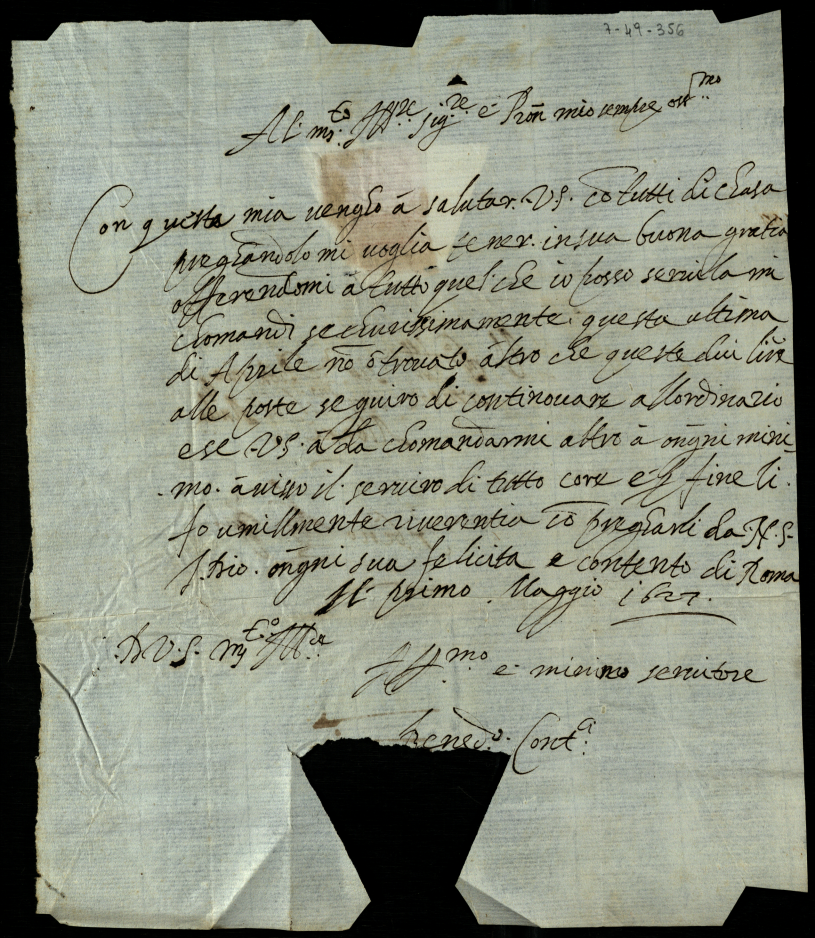 7-49-356
Al mto Illre sigre e Pron mio sempre ossmo
Con questa mia vengho á salutar. VS. cō tutti di chasa
preghāndolo mi voglia tener. in sua buona gratia
offerendomi á tutto quel. che io posso servirla mi
chomandi sechurissimamente. questa ultima
di Aprile nō ó trovato áltro che queste dui lire
alle poste seguiro di continovare allordinario
e se VS. á da chomāndarmi altro á ōngni mini
mo. ávisso il. serviro di tutto core e fine li.
fo umillmente riverentia cō pregharli da N.S.
Dio. ōngni sua felicita e contento di Roma
Il primo. Maggio 1627.
D.V.S. mto Illre
Affmo e minimo servitore
Benedo. Conti